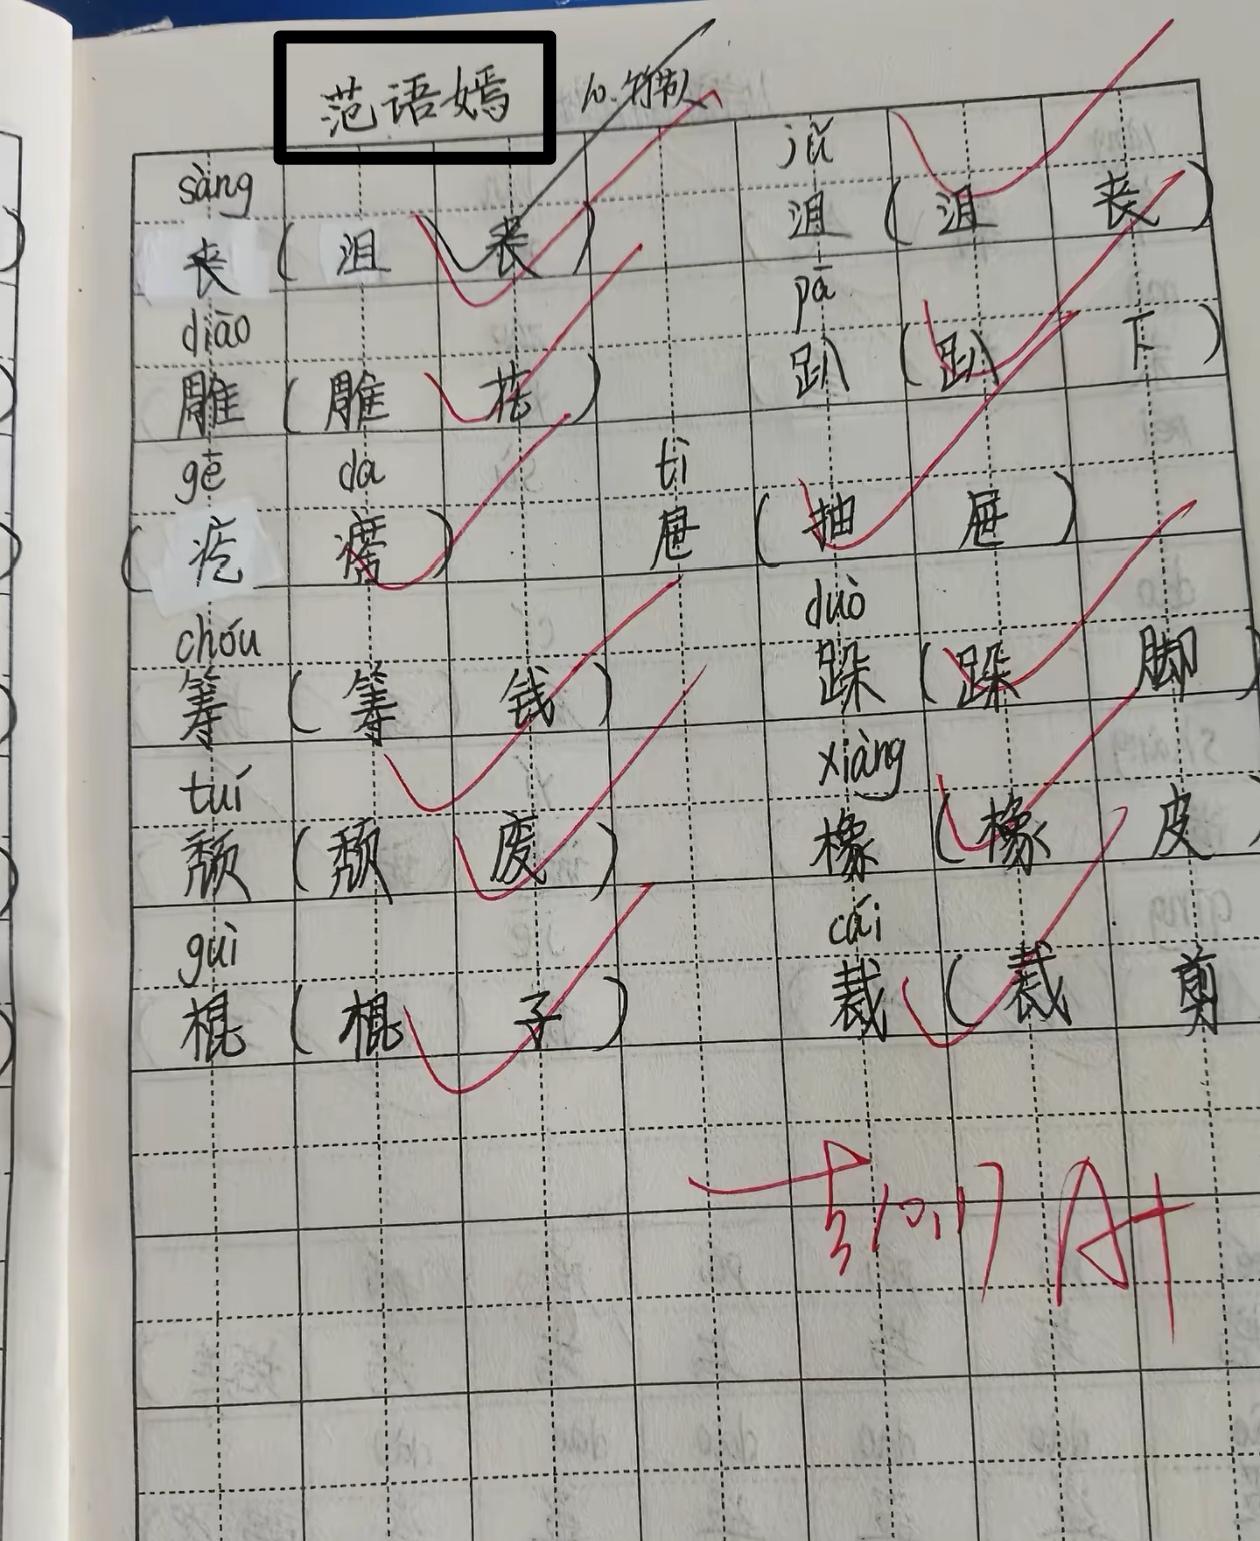 范语嫣 10.竹节人
sàng jǔ
丧(沮丧) 沮(沮丧)
diāo pā
雕(雕花) 趴(趴下)
gē da tì
(疙瘩) 屉(抽屉)
chóu duò
筹(筹钱) 跺(跺脚)
tuí xiàng
颓(颓废) 橡(橡皮)
gùi cái
棍(棍子) 裁(裁剪
10.17 A+